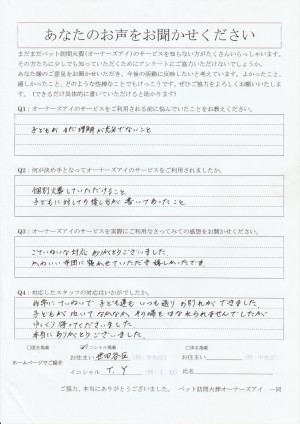 あなたのお声をお聞かせください
まだまだペット訪問火葬(オーナーズアイ)のサービスを知らない方がたくさんいらっしゃいます。
その方たちに少しでも知っていただくためにアンケートにご協力いただけないでしょうか。
あなた様のご意見をお聞かせいただき、今後の活動に反映したいと考えています。よかったこと、
嬉しかったこと、どのような些細なことでもけっこうです。ぜひご協力をよろしくお願いいたします。
(できるだけ具体的に書いていただけると助かります)
Q1：オーナーズアイのサービスをご利用される前に悩んでいたことをお教えください。
子どもがまだ理解が充分でないこと
Q2：何が決め手となってオーナーズアイのサービスをご利用されましたか。
個別火葬していただけること
子どもに対しての接し方が書いてあったこと
Q3：オーナーズアイのサービスを実際にご利用なさってみての感想をお聞かせください。
ていねいな対応ありがとうございました。
かわいい布団に寝かせていただき嬉しかったです。
Q4：対応したスタッフの対応はいかがでしたか？
非常にていねいで子ども達もいつも通りお別れができました。
子どもが泣いてなかなかその場をはなれられませんでしたが
ゆっくり待ってくださいました。
本当にありがとうございました。
□匿名掲載 ☑イニシャル掲載 □実名掲載
ホームページでご紹介
お住まい 世田谷区
イニシャル T.Y
お住まい
お名前
ご協力、本当にありがとうございました。 ペット訪問火葬オーナーズアイ 一同